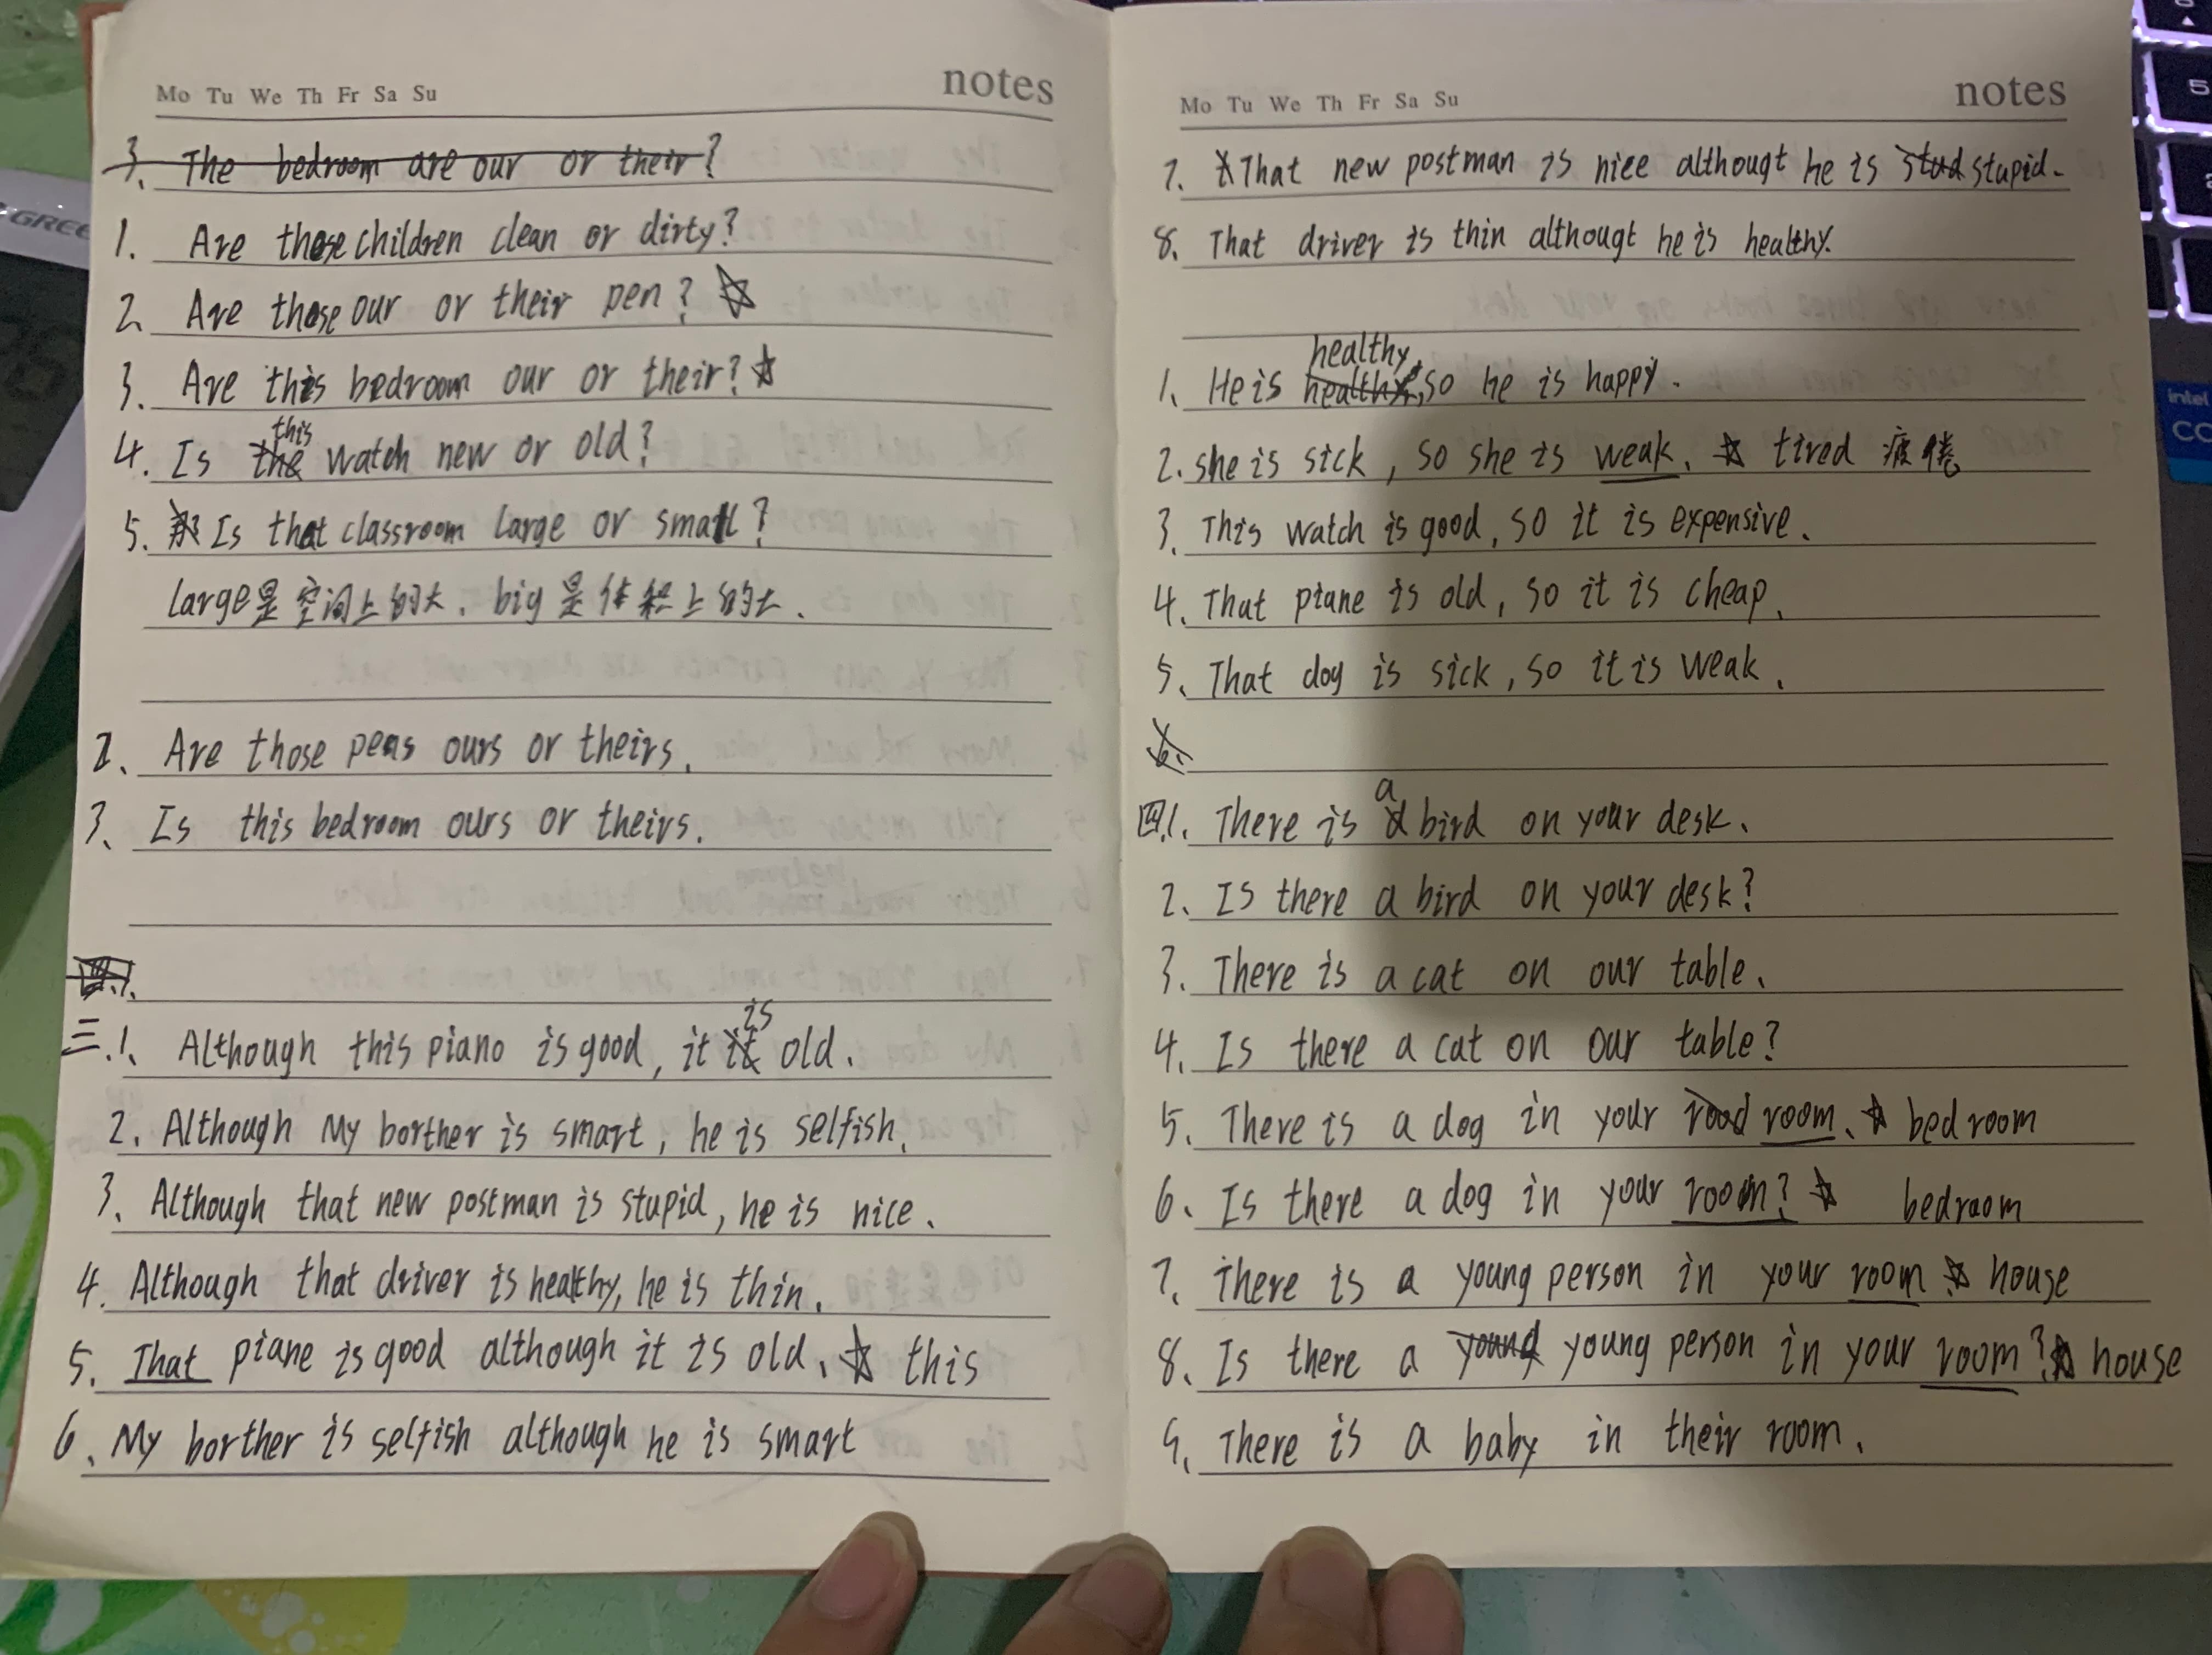 Mo Tu We Th Fr Sa Su notes
3. The bedroom are our or their?
1. Are those children clean or dirty?
2. Are those our or their pen? ☆
3. Are this bedroom our or their? ☆
this
4. Is the watch new or old?
5. Is that classroom large or small?
large是空间上的大. big是体积上的大.
2. Are those pens ours or theirs.
3. Is this bedroom ours or theirs.
is
三.1. Although this piano is good, it it old.
2. Although My borther is smart, he is selfish.
3. Although that new postman is stupid, he is nice.
4. Although that driver is healthy, he is thin.
5. That piane is good although it is old. ☆ this
6. My borther is selfish although he is smart
Mo Tu We Th Fr Sa Su notes
7. That new postman is nice althougt he is stud stupid.
8. That driver is thin althougt he is healthy.
healthy
1. He is healthy, so he is happy.
2. she is sick, so she is weak. ☆ tired 疲倦
3. This watch is good, so it is expensive.
4. That piane is old, so it is cheap.
5. That dog is sick, so it is weak.
6.
a
四.1. There is a bird on your desk.
2. Is there a bird on your desk?
3. There is a cat on our table.
4. Is there a cat on our table?
5. There is a dog in your rood room. ☆ bedroom
6. Is there a dog in your room? ☆ bedroom
7. There is a young person in your room ☆ house
8. Is there a yound young person in your room? ☆ house
9. There is a baby in their room.
GREE
intel
5